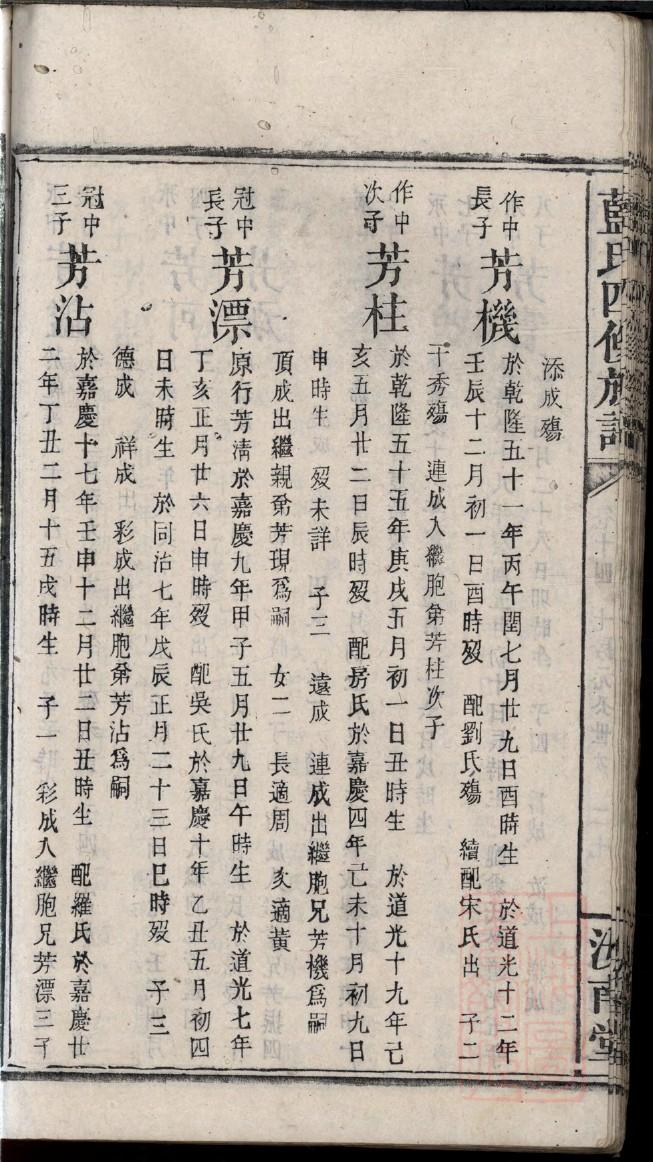 藍氏四修族譜
汝南堂
添成殤
作中長子
芳機
於乾隆五十一年丙午閏七月廿九日酉時生 於道光十二年
壬辰十二月初一日酉時歿 配劉氏殤 續配宋氏出 子二
千秀殤 連成入繼胞弟芳柱次子
作中次子
芳柱
於乾隆五十五年庚戌五月初一日丑時生 於道光十九年己
亥五月廿二日辰時歿 配房氏於嘉慶四年己未十月初九日
申時生 歿未詳 子三 遠成 連成出繼胞兄芳機爲嗣
頂成出繼親弟芳現爲嗣 女二 長適周 次適黃
冠中長子
芳漂
原行芳清於嘉慶九年甲子五月廿九日午時生 於道光七年
丁亥正月廿六日申時歿 配吳氏於嘉慶十年乙丑五月初四
日未時生 於同治七年戊辰正月二十三日巳時歿 子三
德成 祥成 彩成出繼胞弟芳沾爲嗣
冠中三子
芳沾
於嘉慶十七年壬申十二月廿二日丑時生 配羅氏於嘉慶廿
二年丁丑二月十五戌時生 子一 彩成入繼胞兄芳漂三子